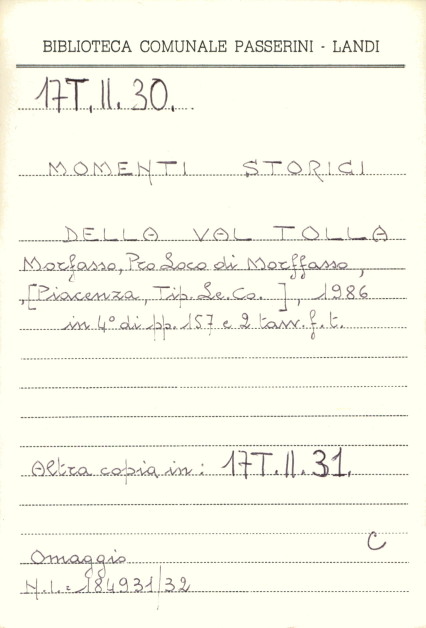 BIBLIOTECA COMUNALE PASSERINI - LANDI
17T.II.30.
MOMENTI STORICI
DELLA VAL TOLLA
Morfasso, Pro Loco di Morffasso,
,[Piacenza, Tip. Le.Co. ], 1986
in 4° di pp. 157 e 2 tavv. f. t.
Altra copia in: 17T.II.31.
C
Omaggio
N.I.= 184931/32